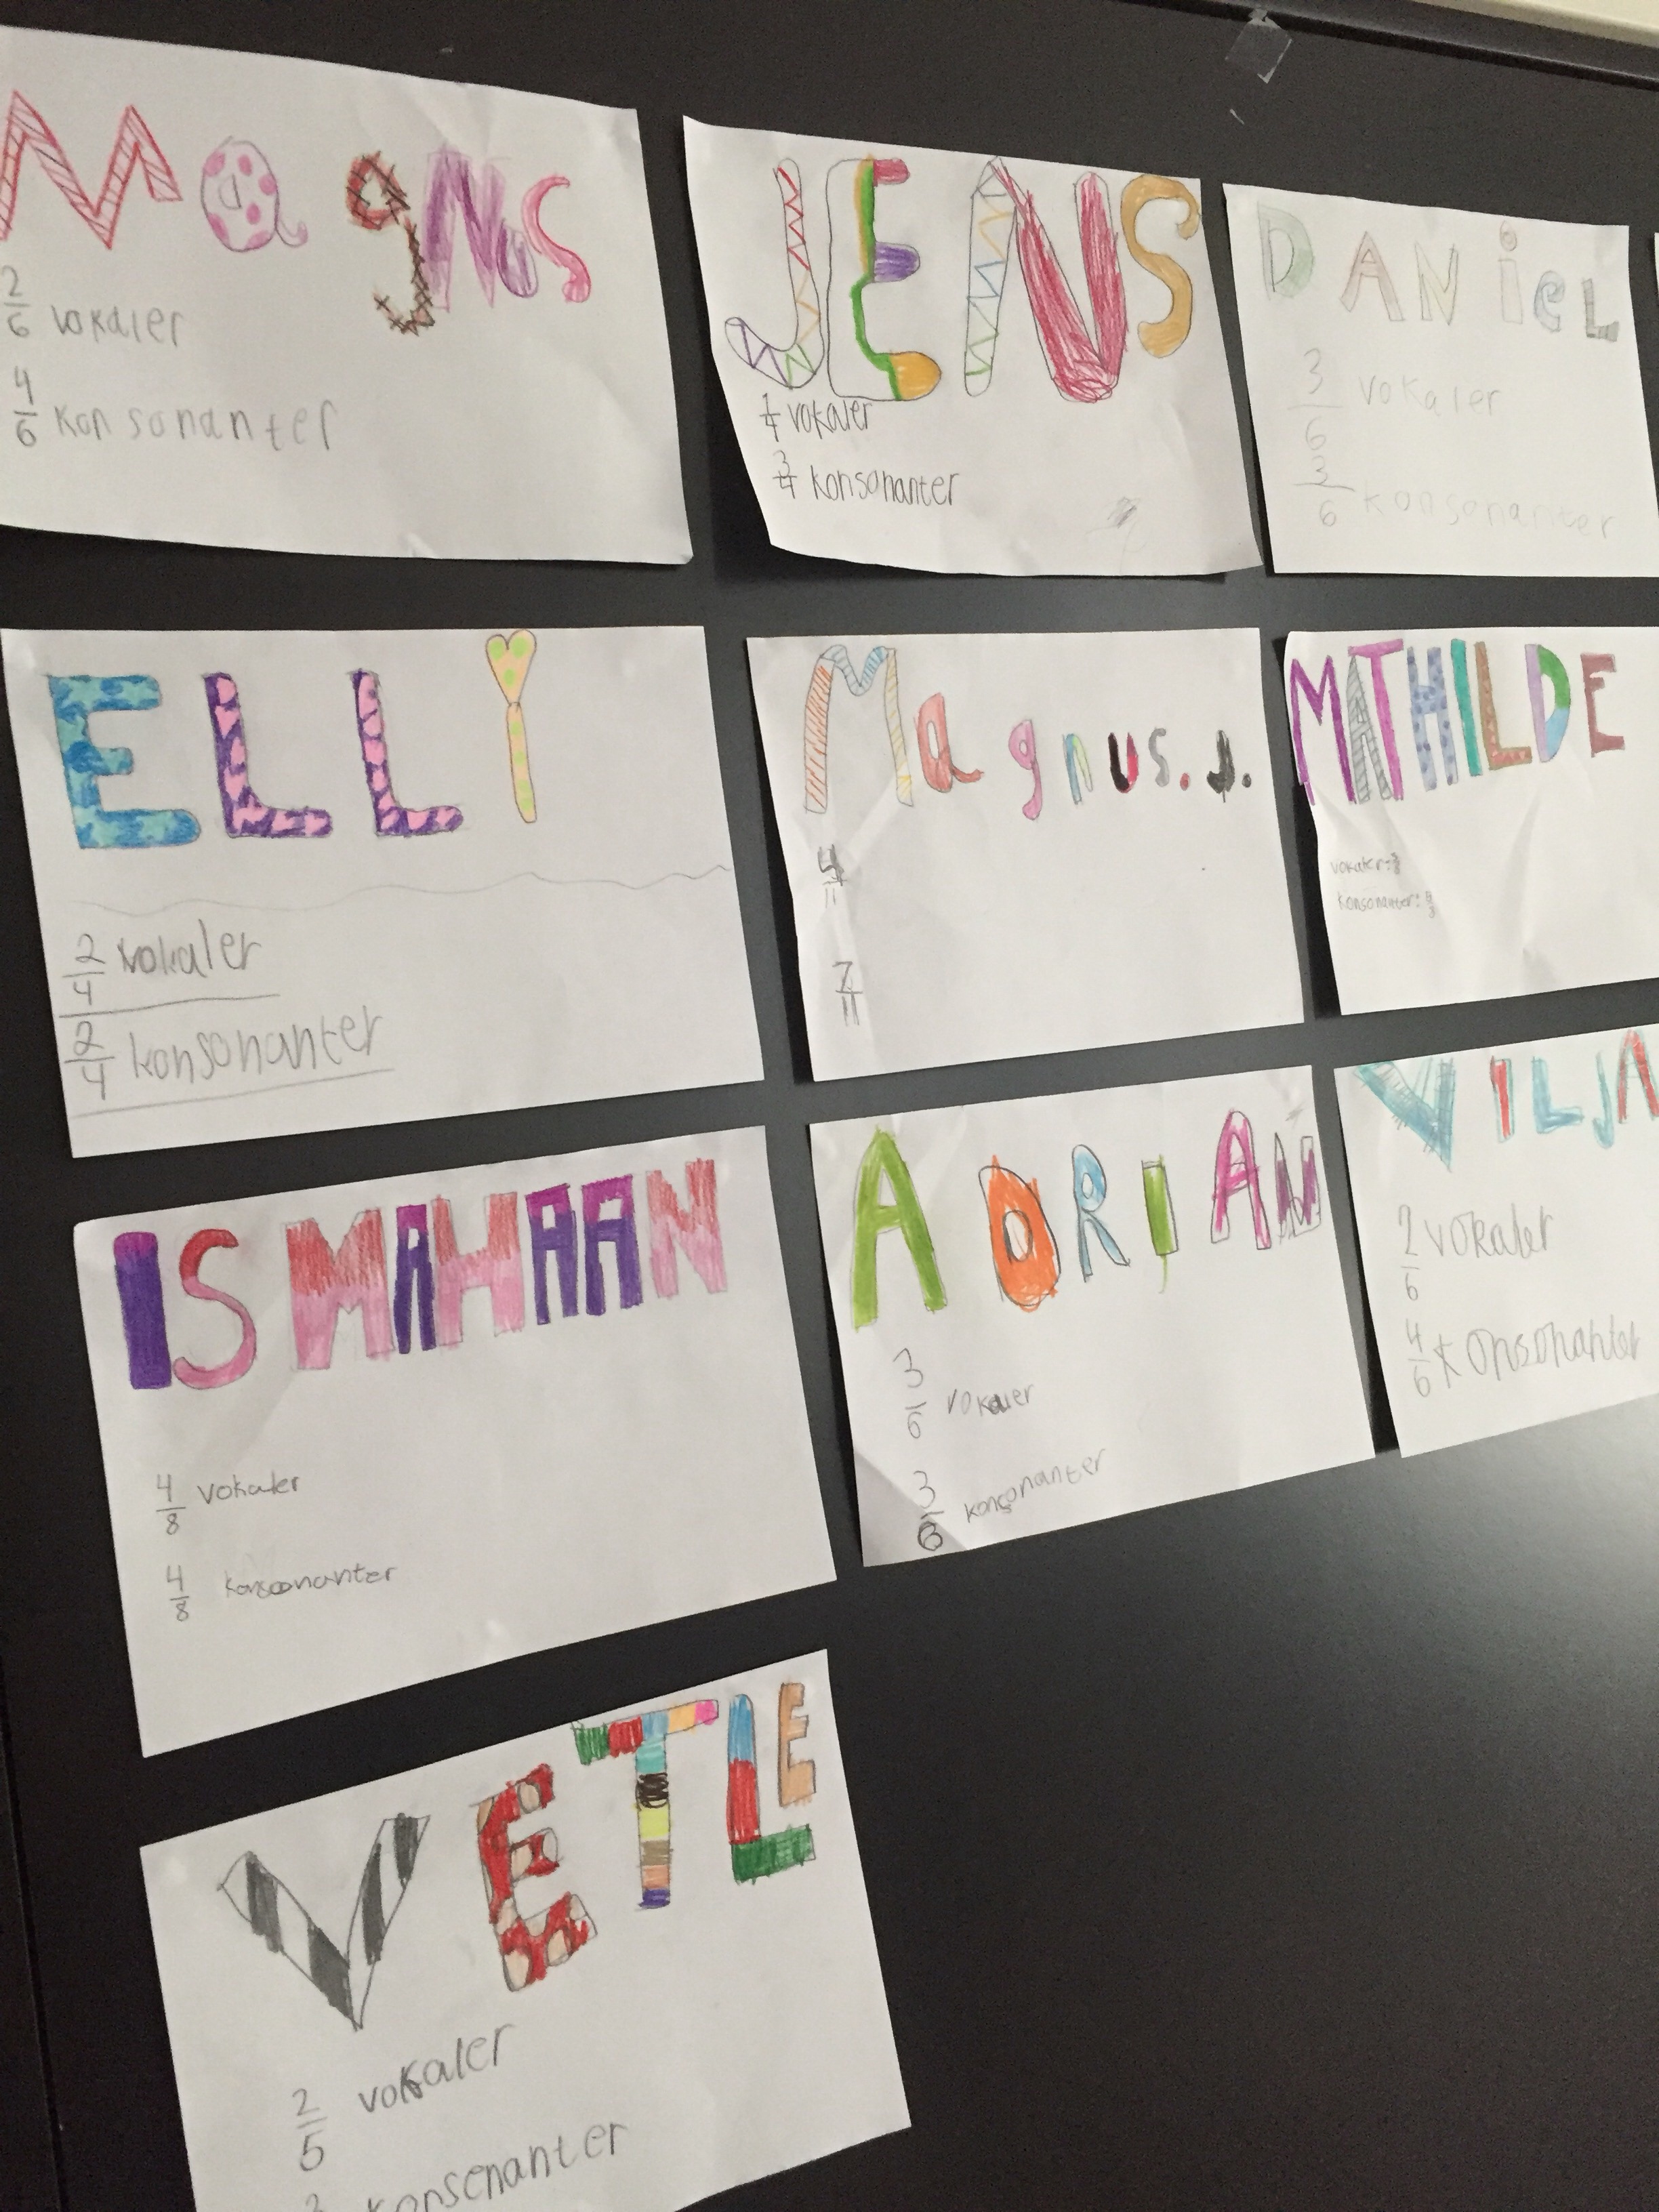 MagNus
2/6 vokaler
4/6 konsonanter
JENS
1/4 vokaler
3/4 konsonanter
DANieL
3/6 vokaler
3/6 konsonanter
ELLY
2/4 vokaler
2/4 konsonanter
Magnus. J.
4/11
7/11
MATHILDE
vokaler:
konsonanter:
ISMAHAAN
4/8 vokaler
4/8 konsoonanter
ADRIAN
3/6 vokaler
3/6 konsonanter
VILJA
2/6 vokaler
4/6 konsonanter
VETLE
2/5 vokaler
konsenanter